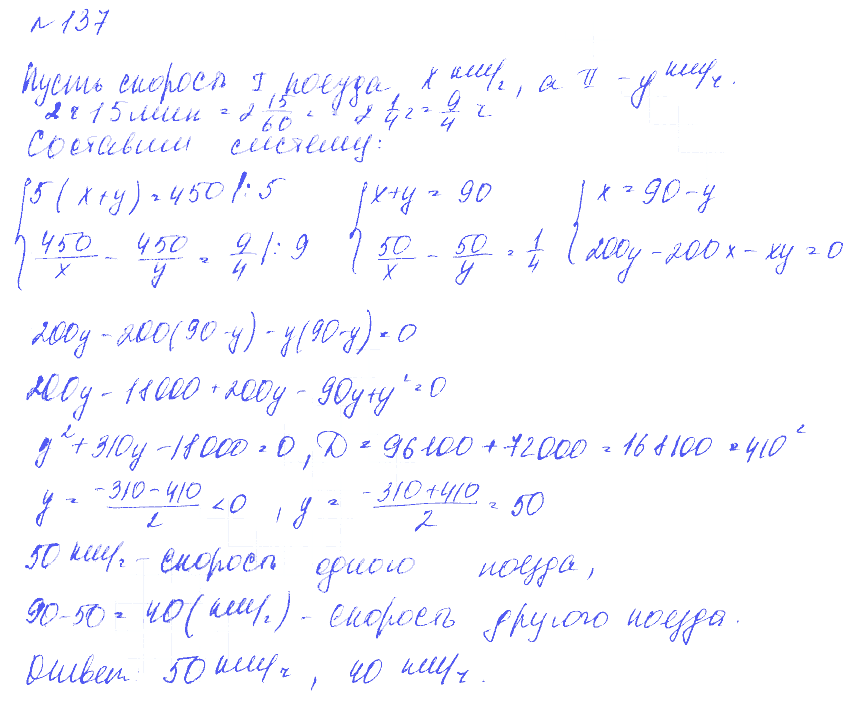 №137
Пусть скорость I поезда x км/ч, а II – y км/ч.
2 ч 15 мин = 2 15/60 = 2 1/4 ч = 9/4 ч.
Составим систему:
{ 5(x+y) = 450 |:5   { x+y = 90   { x = 90-y
450/x - 450/y = 9/4 |:9   50/x - 50/y = 1/4   200y - 200x - xy = 0
200y - 200(90-y) - y(90-y) = 0
200y - 18000 + 200y - 90y + y² = 0
y² + 310y - 18000 = 0, D = 96100 + 72000 = 168100 = 410²
y = (-310-410)/2 < 0, y = (-310+410)/2 = 50
50 км/ч – скорость одного поезда,
90-50 = 40 (км/ч) – скорость другого поезда.
Ответ 50 км/ч, 40 км/ч.